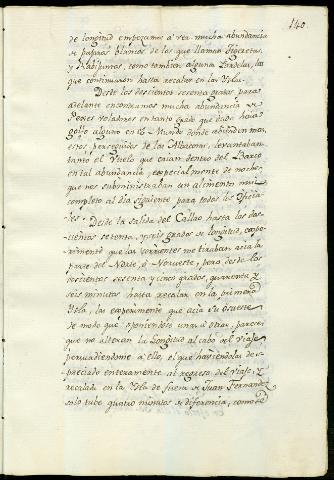 140
de longitud empezamos a ver mucha abundancia
de pajaros blancos de los que llaman Tigeretas,
y Rabijuncos, como tambien algunas Pardelas, las
que continuaron hasta recalar en las Yslas.
Desde los doscientos sesenta grados para
adelante encontramos mucha abundancia de
Peces voladores en tanto grado que dudo haia
golfo alguno en el Mundo donde abunden mas,
estos perseguidos de las Albacoras, levantaban
tanto el vuelo que caian dentro del Barco
en tal abundancia, especialmente de noche,
que nos subministraban un alimento mui
completo al dia siguiente para todos los Oficia-
les. Desde la salida del Callao hasta los dos-
cientos setenta, y seis grados de longitud, expe-
rimenté que las corrientes me tiraban acia la
parte del Norte, o Norueste, pero desde los
doscientos sesenta y cinco grados, quarenta y
seis minutos hasta recalar en la primera
Ysla, las experimente que acia el Sudueste
de modo que oponiendose unas a otras, parece
que no alteran la Longitud al cabo del viaje
persuadiendome a ello, el que haviendolas des-
preciado enteramente al regreso del viaje, y
recalada en la Ysla de fuera de Juan Fernandez
solo tube quatro minutos de diferencia, como se